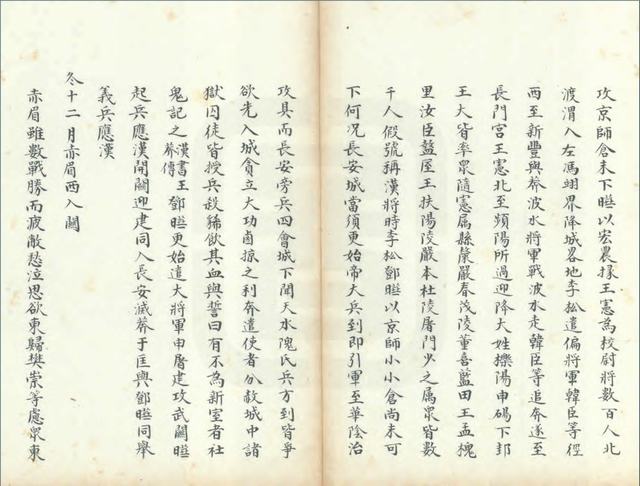 攻京師倉未下曄以宏農掾王憲為校尉將數百人北
渡渭入左馮翊界降城畧地李松遣偏將軍韓臣等徑
西至新豐與莽波水將軍戰波水走韓臣等追奔遂至
長門宮王憲北至頻陽所過迎降大姓櫟陽申碭下邽
王大皆率眾隨憲屬縣斄嚴春茂陵董喜藍田王孟槐
里汝臣盩厔王扶陽陵嚴本杜陵屠門少之屬眾皆數
千人假號稱漢將時李松鄧曄以京師小小倉尚未可
下何況長安城當須更始帝大兵到即引軍至華陰治
攻具而長安旁兵四會城下聞天水隗氏兵方到皆爭
欲先入城貪立大功鹵掠之利莽遣使者分赦城中諸
獄囚徒皆授兵殺豨飲其血與誓曰有不為新室者社
鬼記之漢書王莽傳鄧曄更始遣大將軍申屠建攻武關曄
起兵應漢開關迎建同入長安滅莽于匡與鄧曄同舉
義兵應漢
冬十二月赤眉西入關
赤眉雖數戰勝而疲敝愁泣思欲東歸樊崇等慮眾東